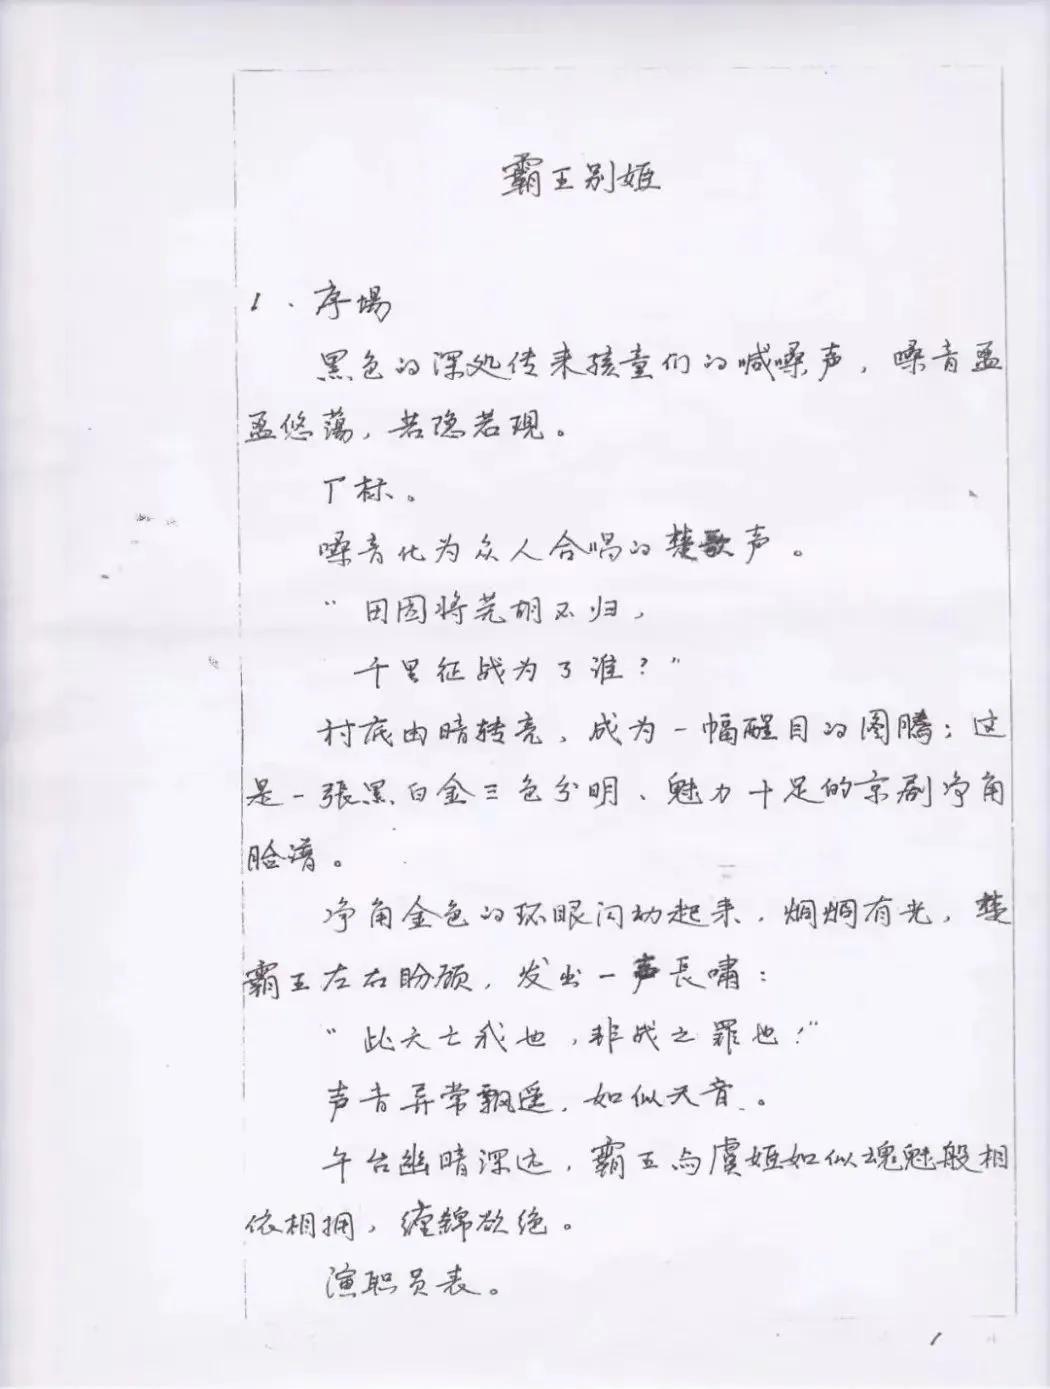 霸王别姬
1、序場
黑色的深处传来孩童们的喊嗓声，嗓音孟
孟悠蕩，若隐若现。
丁标。
嗓音化为众人合唱的楚歌声。
“田园将芜胡不归，
千里征战为了谁？”
衬底由暗转亮，成为一幅醒目的图腾：这
是一張黑白金三色分明、魅力十足的京剧净角
脸谱。
净角金色的环眼闪动起来，炯炯有光，楚
霸王左右盼顾，发出一声長啸：
“此天亡我也，非战之罪也！”
声音异常飘遥，如似天音。
午台幽暗深远，霸王与虞姬如似魂魅般相
依相拥，缠錦欲绝。
演职员表。
1